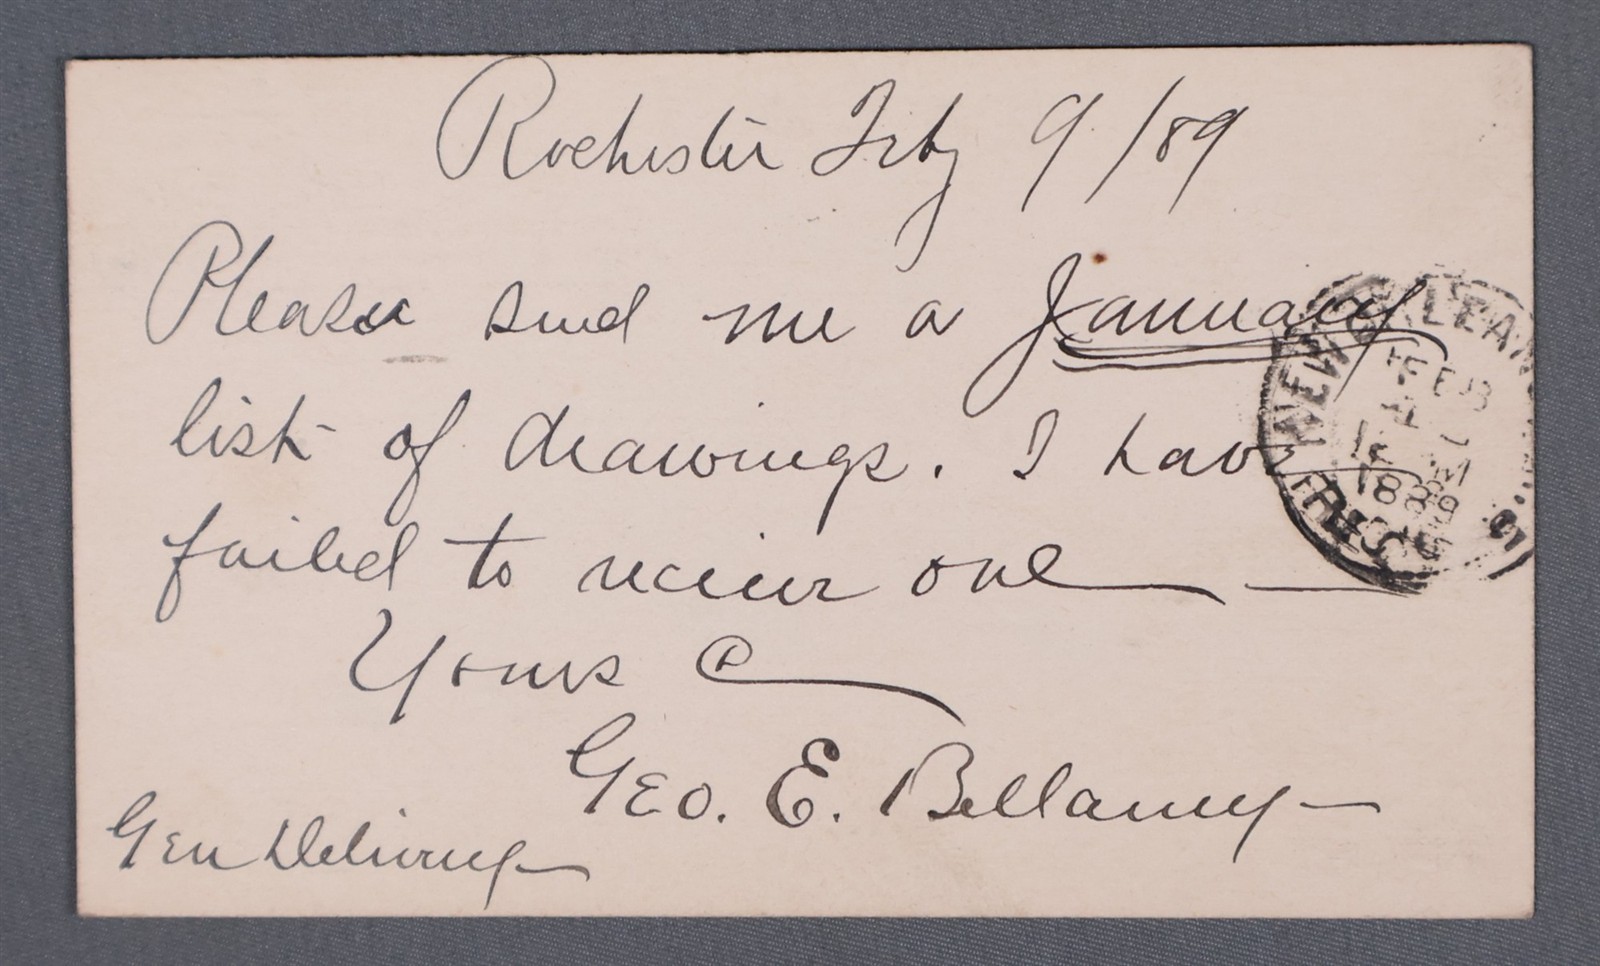 Rochester Feby 9/89
Please send me a January
list of drawings. I have
failed to receive one
Yours
Geo. E. Bellamy
Gen Delivery
NEW ORLEANS
FEB
12 M
1889